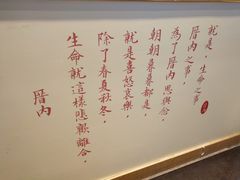 就是，生命之事，
厝內之事，
為了厝內思與念，
朝朝暮暮都是，
就是喜怒哀樂，
除了春夏秋冬，
生命就這樣悲歡離合，
厝內